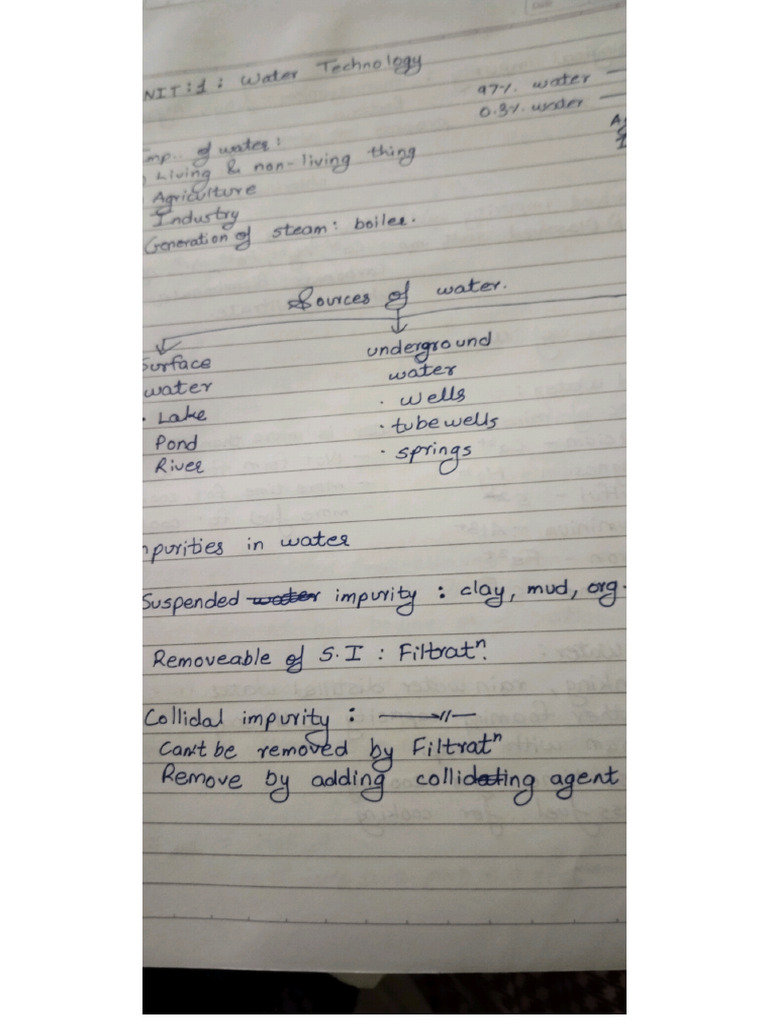 NIT:1: Water Technology
97%. water
0.3%. water
mp.. of water:
) Living & non-living thing
Agriculture
Industry
Generation of steam: boiler.
Sources of water.
Surface
water
· Lake
Pond
River
underground
water
· wells
· tubewells
· springs
purities in water
Suspended water impurity : clay, mud, org.
Removeable of S.I : Filtratn.
Collidal impurity : —〃—
Can't be removed by Filtratn
Remove by adding collidating agent